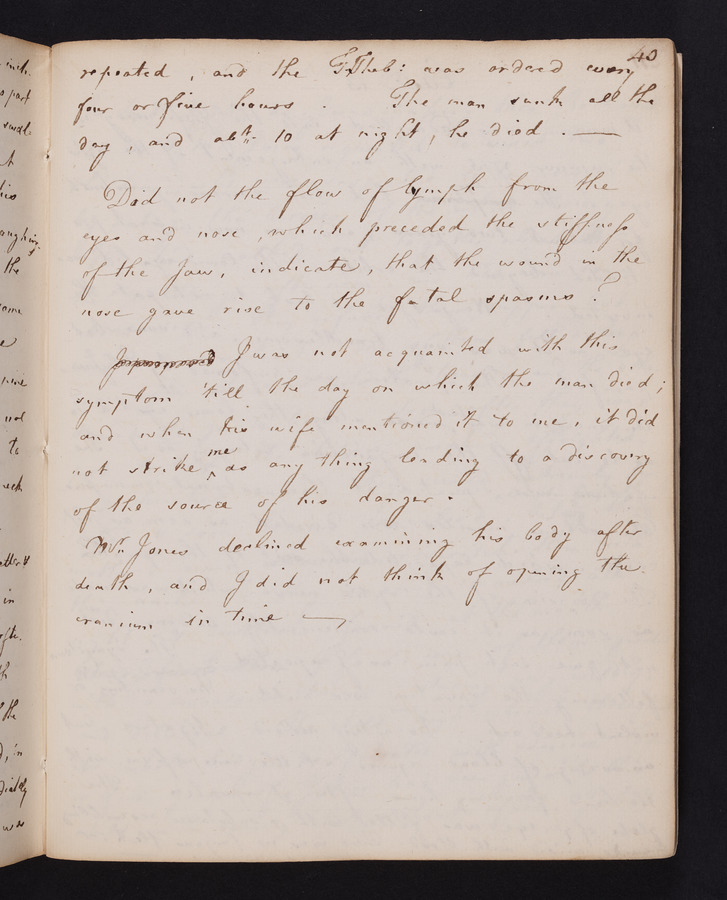 40
repeated, and the T. Theb: was ordered every
four or five hours. The man sunk all the
day, and abt. 10 at night, he died. —
Did not the flow of lymph from the
eyes and nose, which preceded the stiffness
of the Jaw, indicate, that the wound in the
nose gave rise to the fatal spasms?
I was not acquainted with this
symptom 'till the day on which the man died;
and when his wife mentioned it to me, it did
not strike me as any thing lending to a discovery
of the source of his danger.
Jones declined examining his body after
death, and I did not think of opening the
cranium in time —